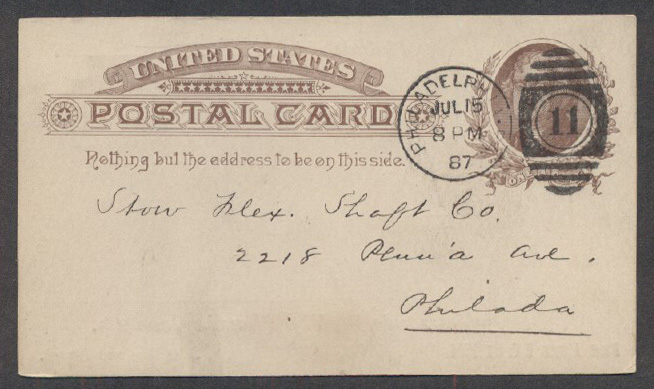 UNITED STATES
POSTAL CARD
Nothing but the address to be on this side.
PHILADELPH
JUL 15
8 PM
87
11
Stow Flex. Shaft Co.
2218 Penn'a Ave.
Philada